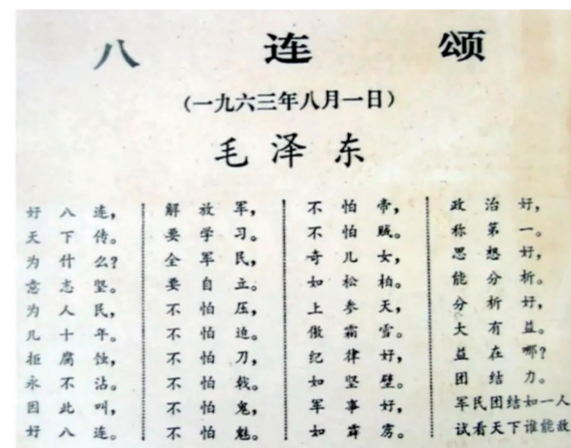 八连颂
(一九六三年八月一日)
毛泽东
好八连，
天下传。
为什么?
意志坚。
为人民，
几十年。
拒腐蚀，
永不沾。
因此叫，
好八连。
解放军，
要学习。
全军民，
要自立。
不怕压，
不怕迫。
不怕刀，
不怕戟。
不怕鬼，
不怕魅。
不怕帝，
不怕贼。
奇儿女，
如松柏。
上参天，
傲霜雪。
纪律好，
如坚壁。
军事好，
如霹雳。
政治好，
称第一。
思想好，
能分析。
分析好，
大有益。
益在哪?
团结力。
军民团结如一人
试看天下谁能敌